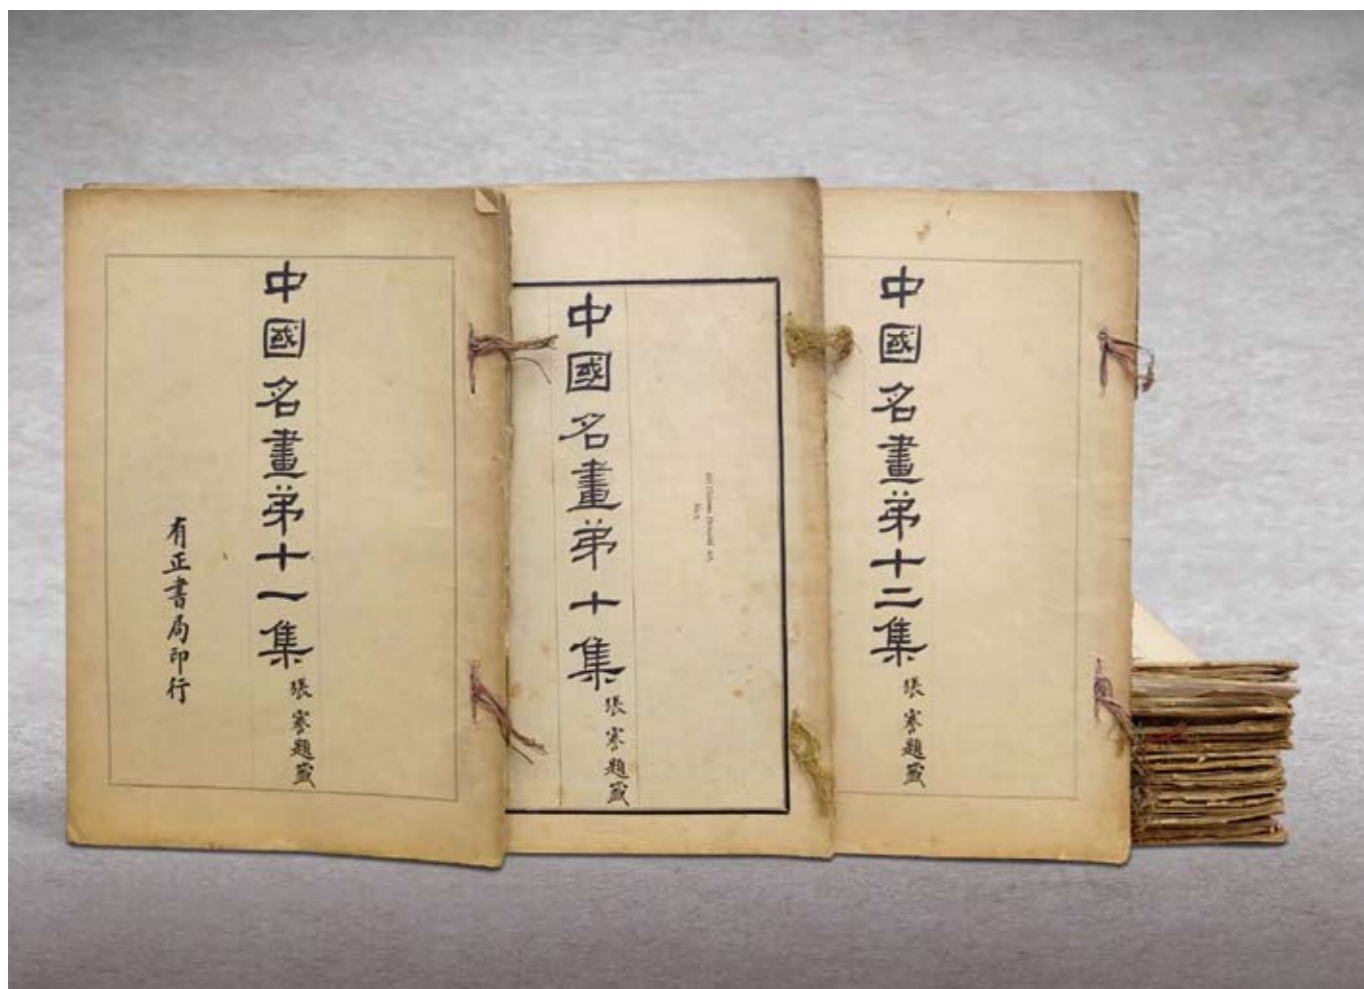 中國名畫弟十一集
張謇題籤
有正書局印行
中國名畫弟十集
張謇題籤
中國名畫弟十二集
張謇題籤